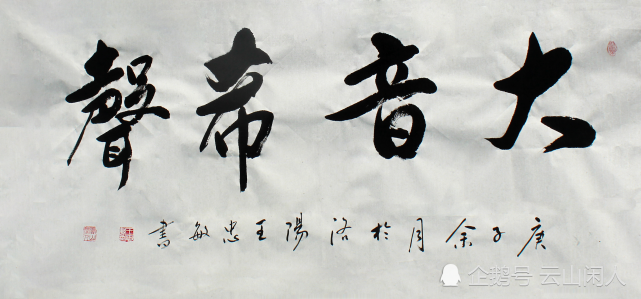 大音希聲
庚子余月於洛陽王忠敏書
企鹅号 云山闲人